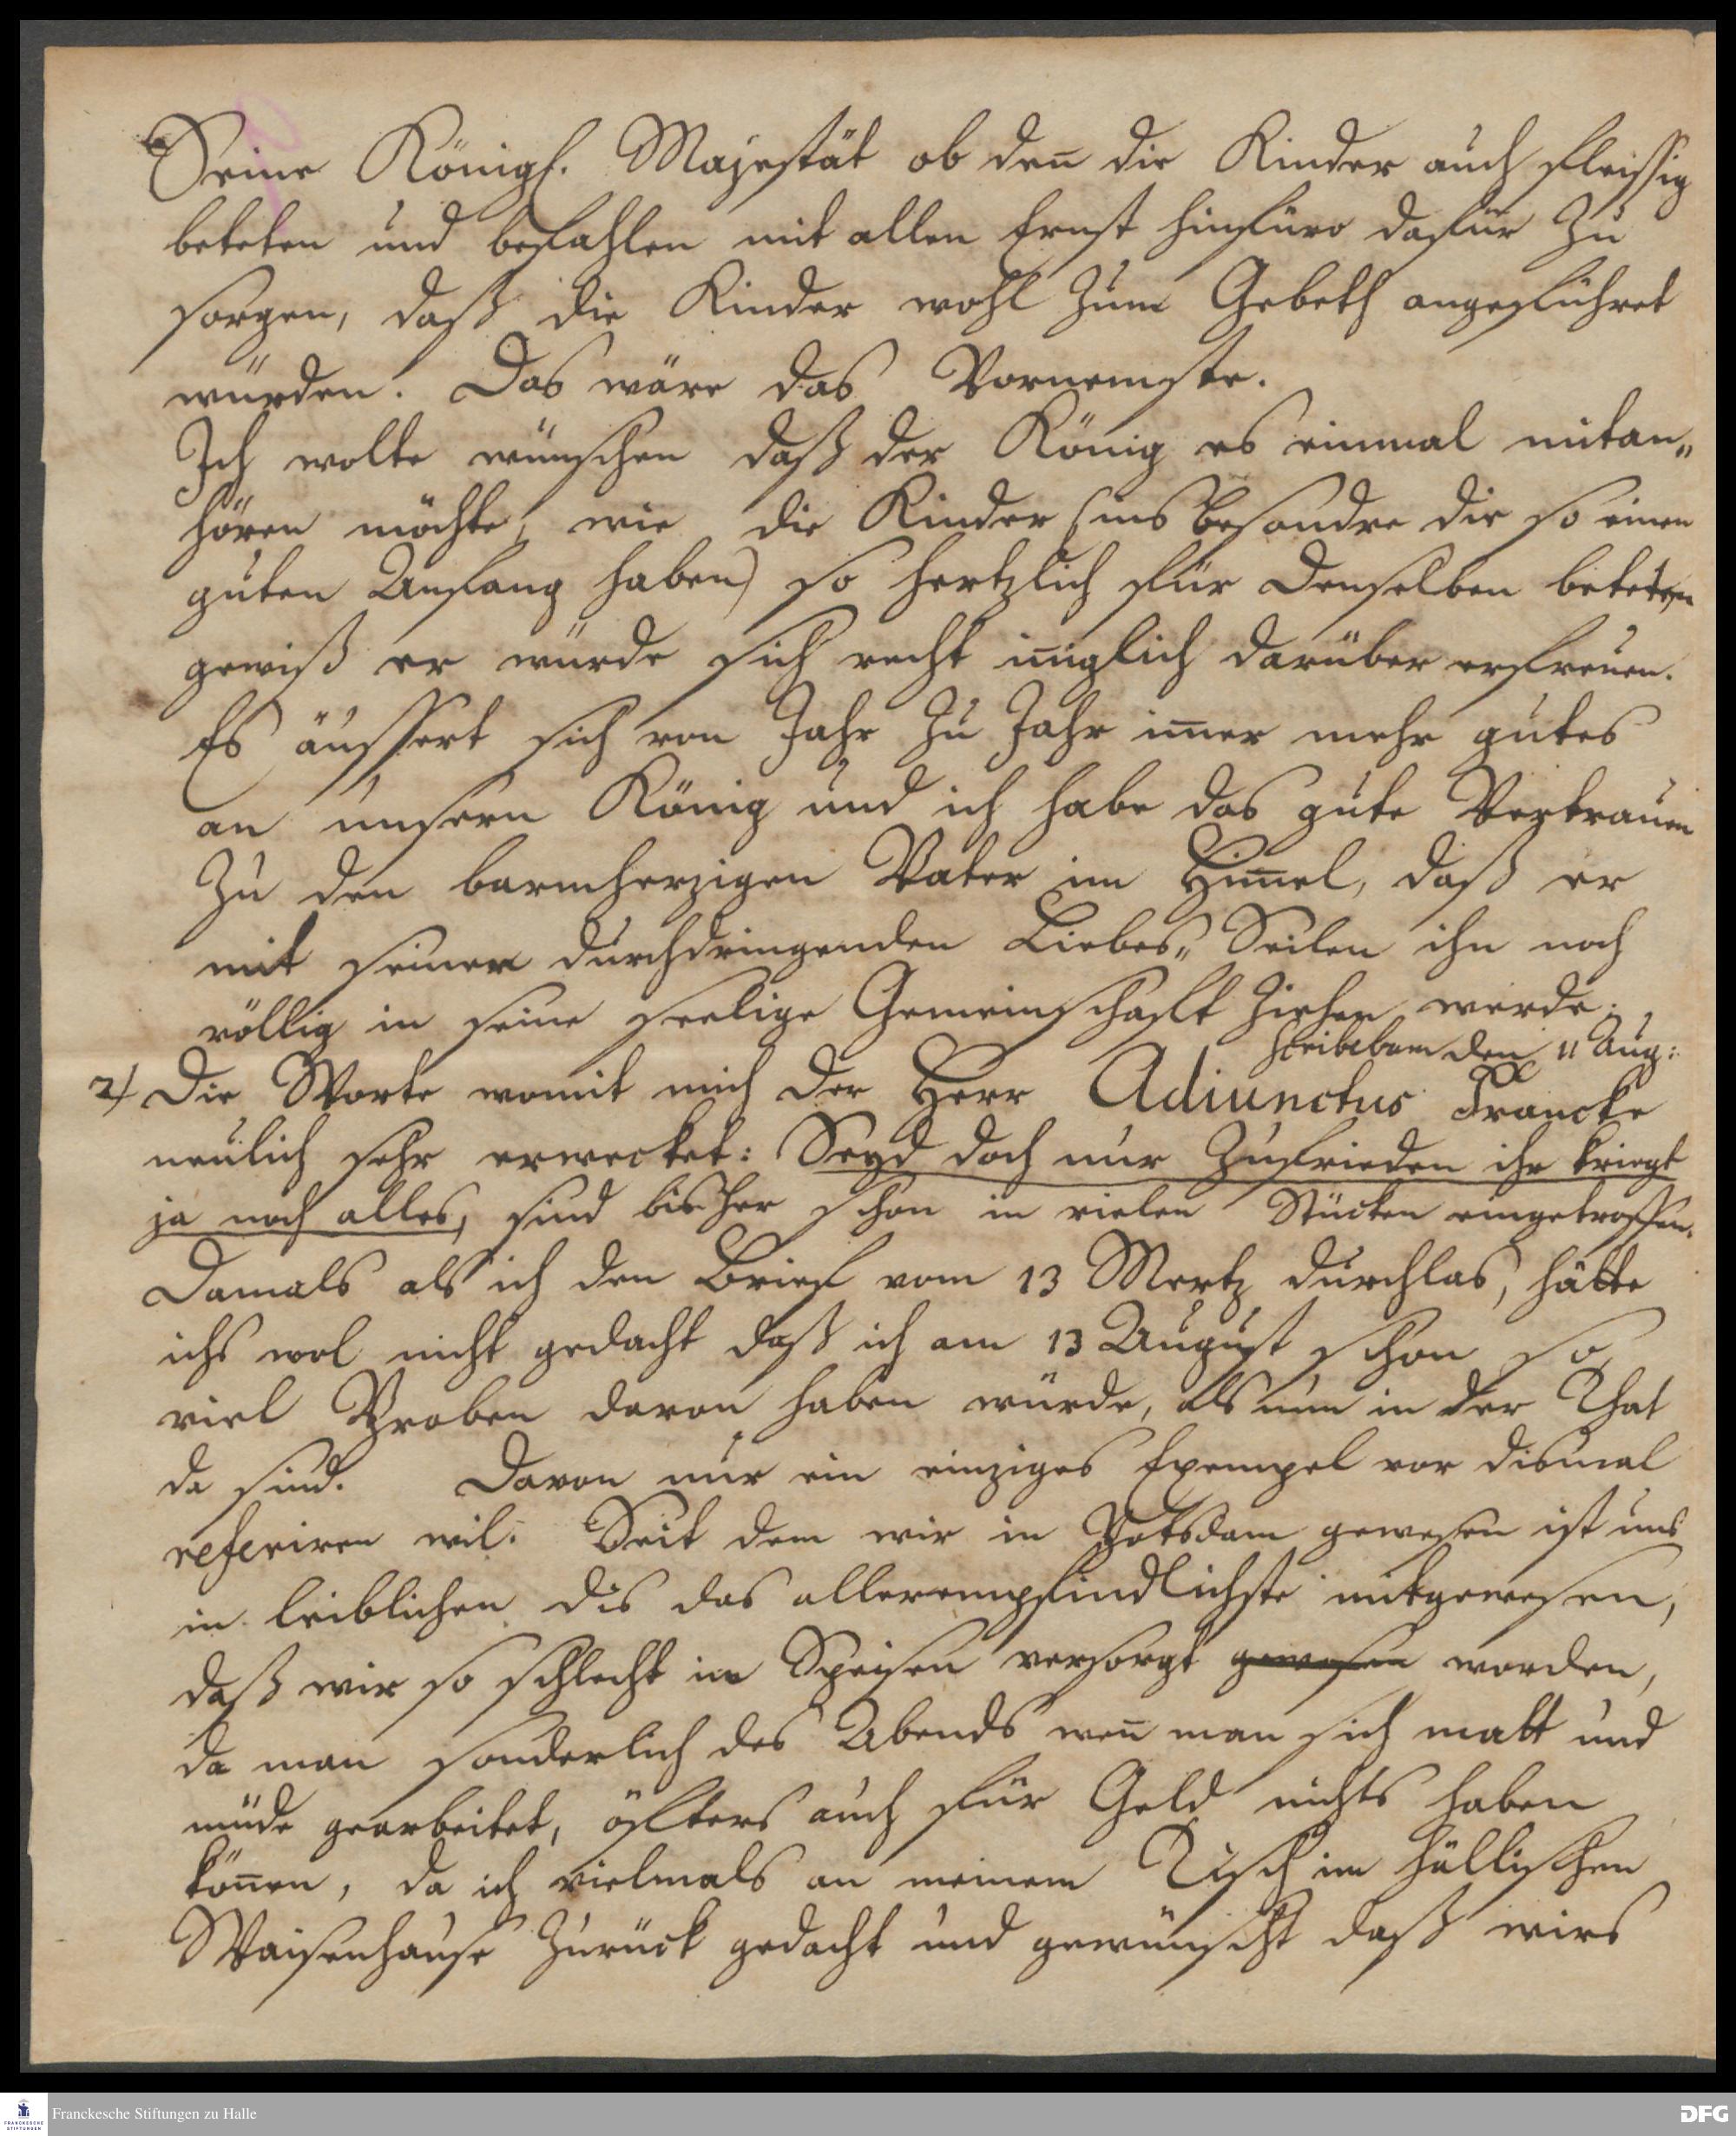 Seine Königl. Majestät ob den̅ die Kinder auch fleissig
beteten und befahlen mit allen Ernst hinfüro dafür zu
sorgen, daß die Kinder wohl zum Gebeth angeführet
würden. Das wäre das Vornemste.
Ich wolte wünschen daß der König es einmal mitan„
hören möchte, wie die Kinder (ins besondre die so einen
guten Anfang haben) so hertzlich für denselben beteten
gewiß er würde sich recht in̅iglich darüber erfreuen.
Es äussert sich von Jahr zu Jahr im̅er mehr gutes
an unsern König und ich habe das gute Vertrauen
zu den barmherzigen Vater im Him̅el, daß er
mit seinen durchdringenden Liebes„ Seilen ihn noch
völlig in seine seelige Gemeinschaft ziehen werde.
scribebam den 11 Aug:
2) Die Worte womit mich der Herr Adiunctus Francke
neulich sehr erwecket: Seyd doch nur zufrieden ihr kriegt
ja noch alles, sind bisher schon in vielen Stücken eingetroffen.
Damals als ich den Brief vom 13 Mertz durchlas, hätte
ichs wol nicht gedacht daß ich am 13 August schon so
viel Proben davon haben würde, als nun in der That
da sind. Davon nur ein einziges Exempel vor dismal
referiren wil. Seit dem wir in Potsdam gewesen ist uns
in leiblichen dis das allerempfindlichste mitgewesen,
daß wir so schlecht im Speisen versorgt gewesen worden,
da man sonderlich des Abends wen̅ man sich matt und
müde gearbeitet, öfters auch für Geld nichts haben
kön̅en, da ich vielmals an meinem Tisch im Hällischen
Waisenhause zurück gedacht und gewünscht daß wirs
Franckesche Stiftungen zu Halle
FRANCKESCHE
STIFTUNGEN
DFG